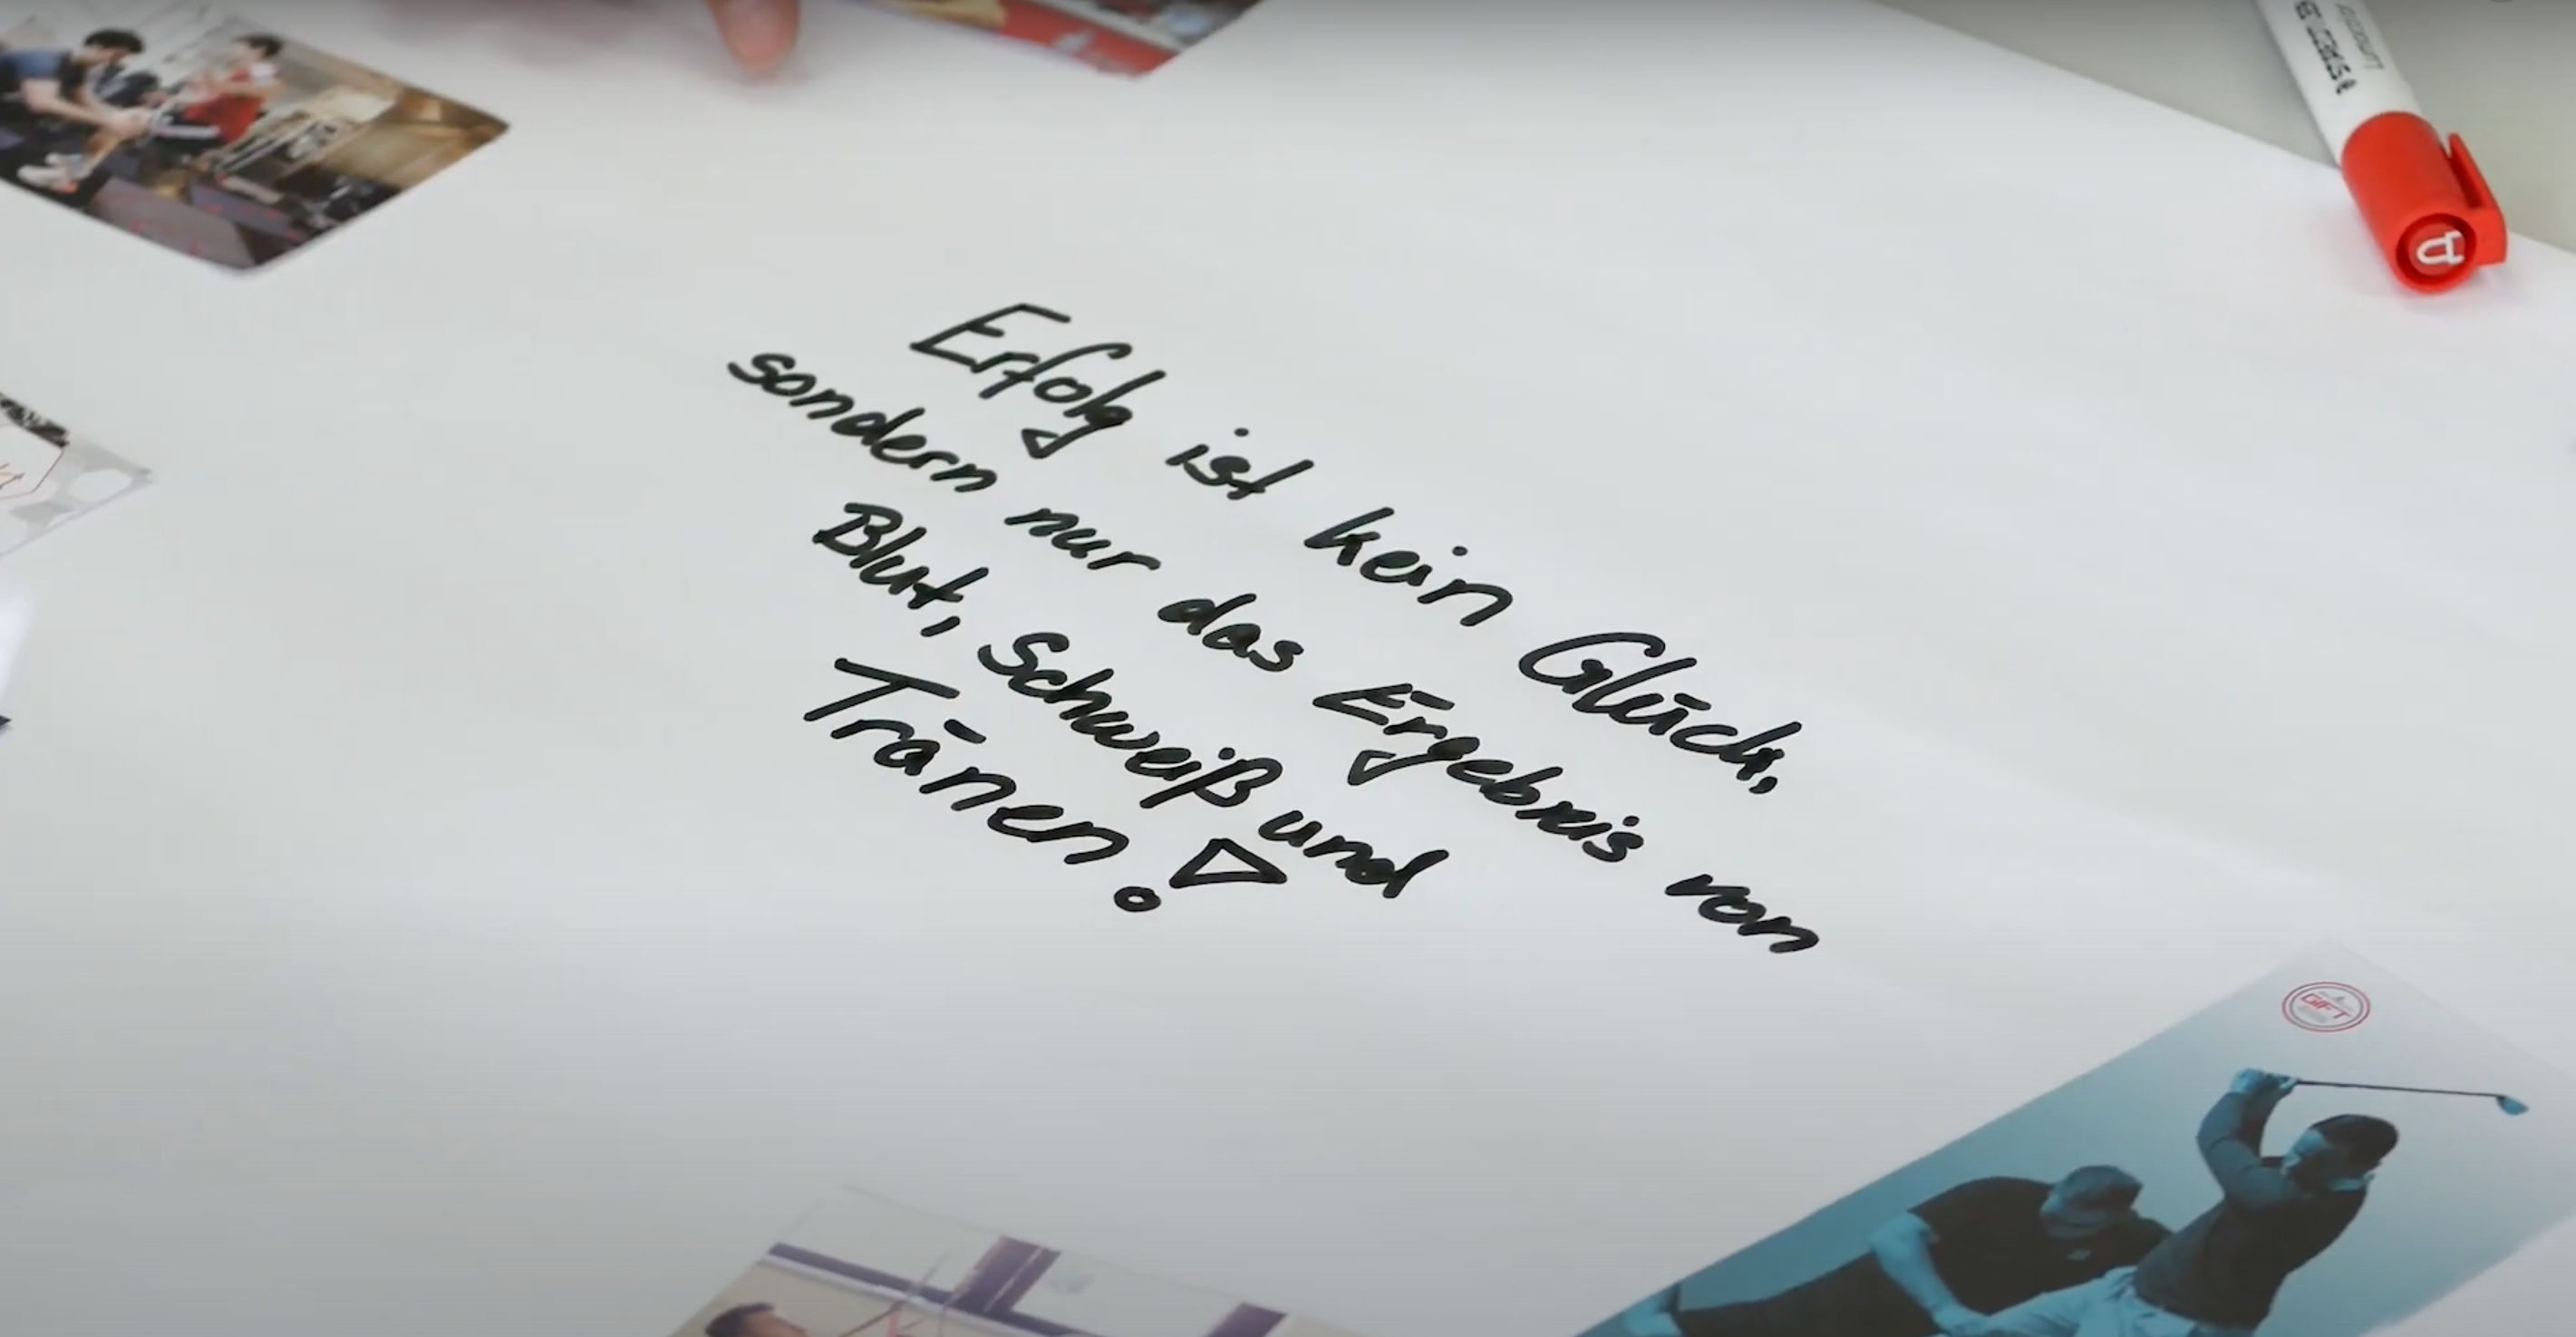 Erfolg ist kein Glück,
sondern nur das Ergebnis von
Blut, Schweiß und
Tränen!
GIFT